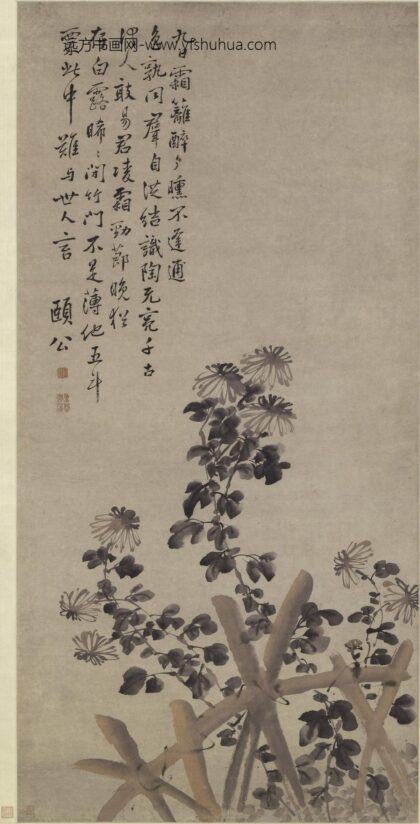 东方书画网-www.yfshuhua.com
霜籬醉夕曛不逢
色孰同羣自從結識陶元亮千古
何人敢易君凌霜勁節晚猶
存白露晞晞閒竹門不是薄他五斗
粟此中難与世人言
頤公